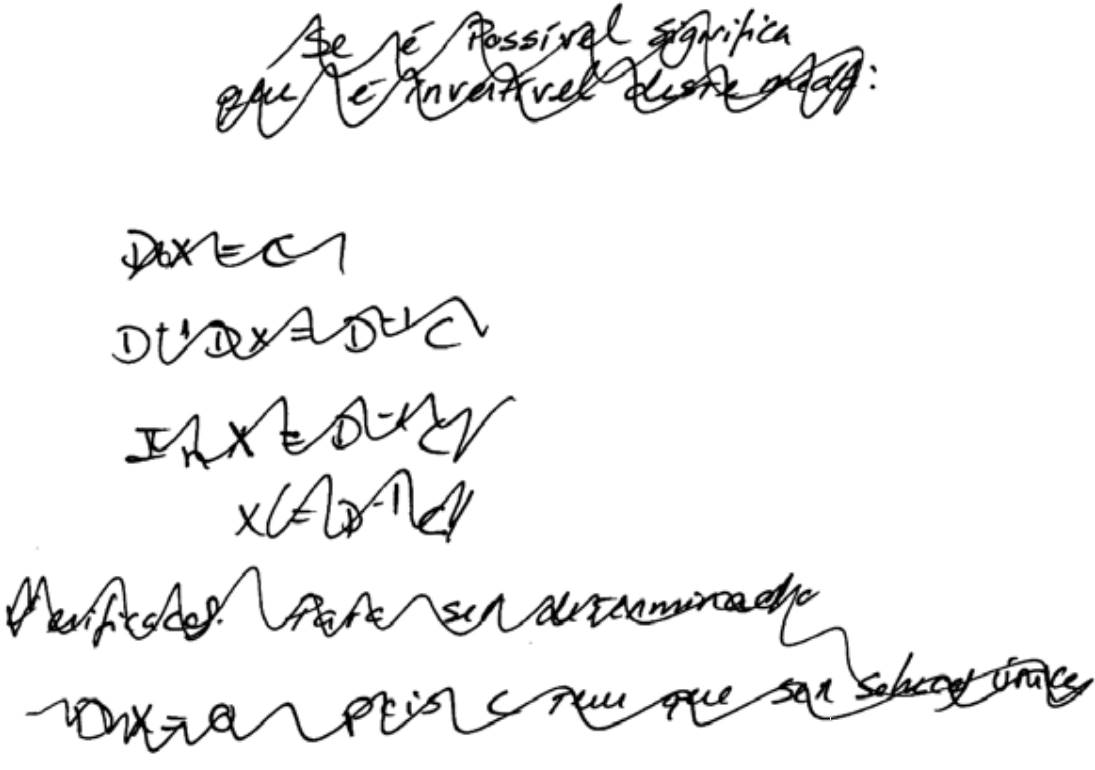 Se é Possível significa
que é invertível deste modo:
DX = C
D⁻¹DX = D⁻¹C
In X = D⁻¹C
X = D⁻¹C
Para ser determinado
DX = 0 pois C tem que ser solução única